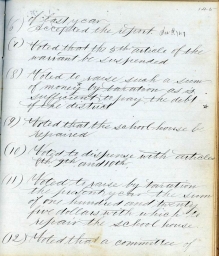 of last year
(6) accepted the report
(7) Voted that the 6th article of the
warrant be suspended
(8) Voted to raise such a sum
of money by taxation as is
sufficient to pay the debt
of the district
(9) Voted that the school house be
repaired
(10) Voted to dispense with articles
9th and 10th.
(11) Voted to raise by taxation
the present year the sum
of one hundred and twenty
five dollars with which to
repair the school house
(12) Voted that a committee of